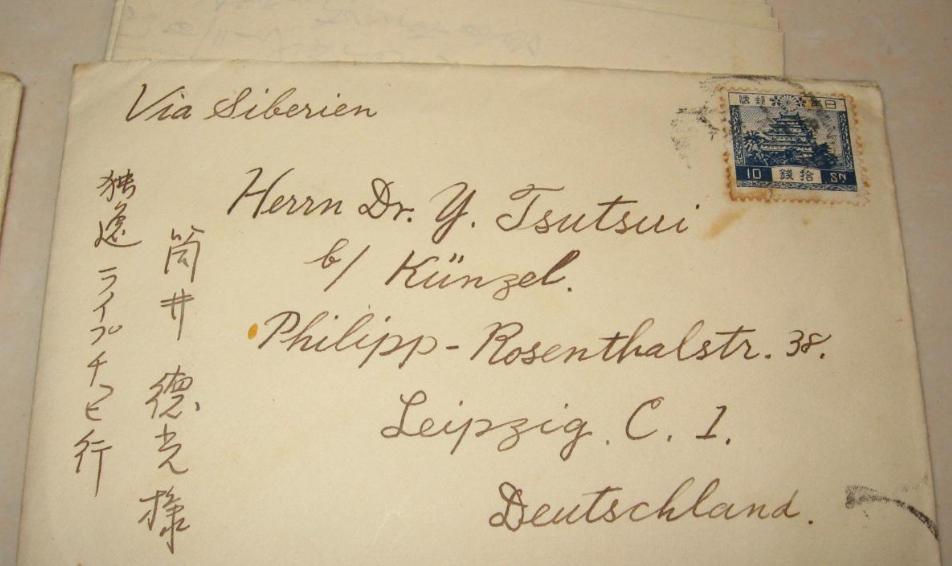 Via Siberien
大日本帝國郵便
10 拾錢 SN
Herrn Dr. Y. Tsutsui
b/ Künzel.
Philipp-Rosenthalstr. 38.
Leipzig. C. 1.
Deutschland.
筒井 德光 様
独逸 ライプチヒ行